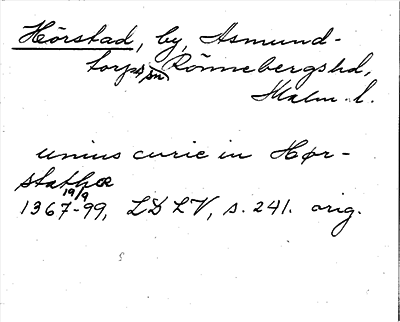 Hörstad, by, Asmund-
torps sn Rönnebergs hd,
Malm. l.
unius curie in Hør-
stathæ
19/9
1367-99, LDLV, s. 241. orig.